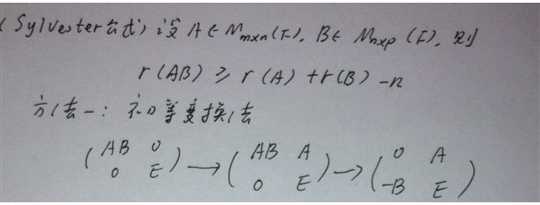 (Sylvester公式) 设 A∈M_{m×n}(F), B∈M_{n×p}(F), 则
r(AB) ≥ r(A) + r(B) - n
方法一: 初等变换法
(AB 0 → (AB A → (0 A
0 E) 0 E) -B E)